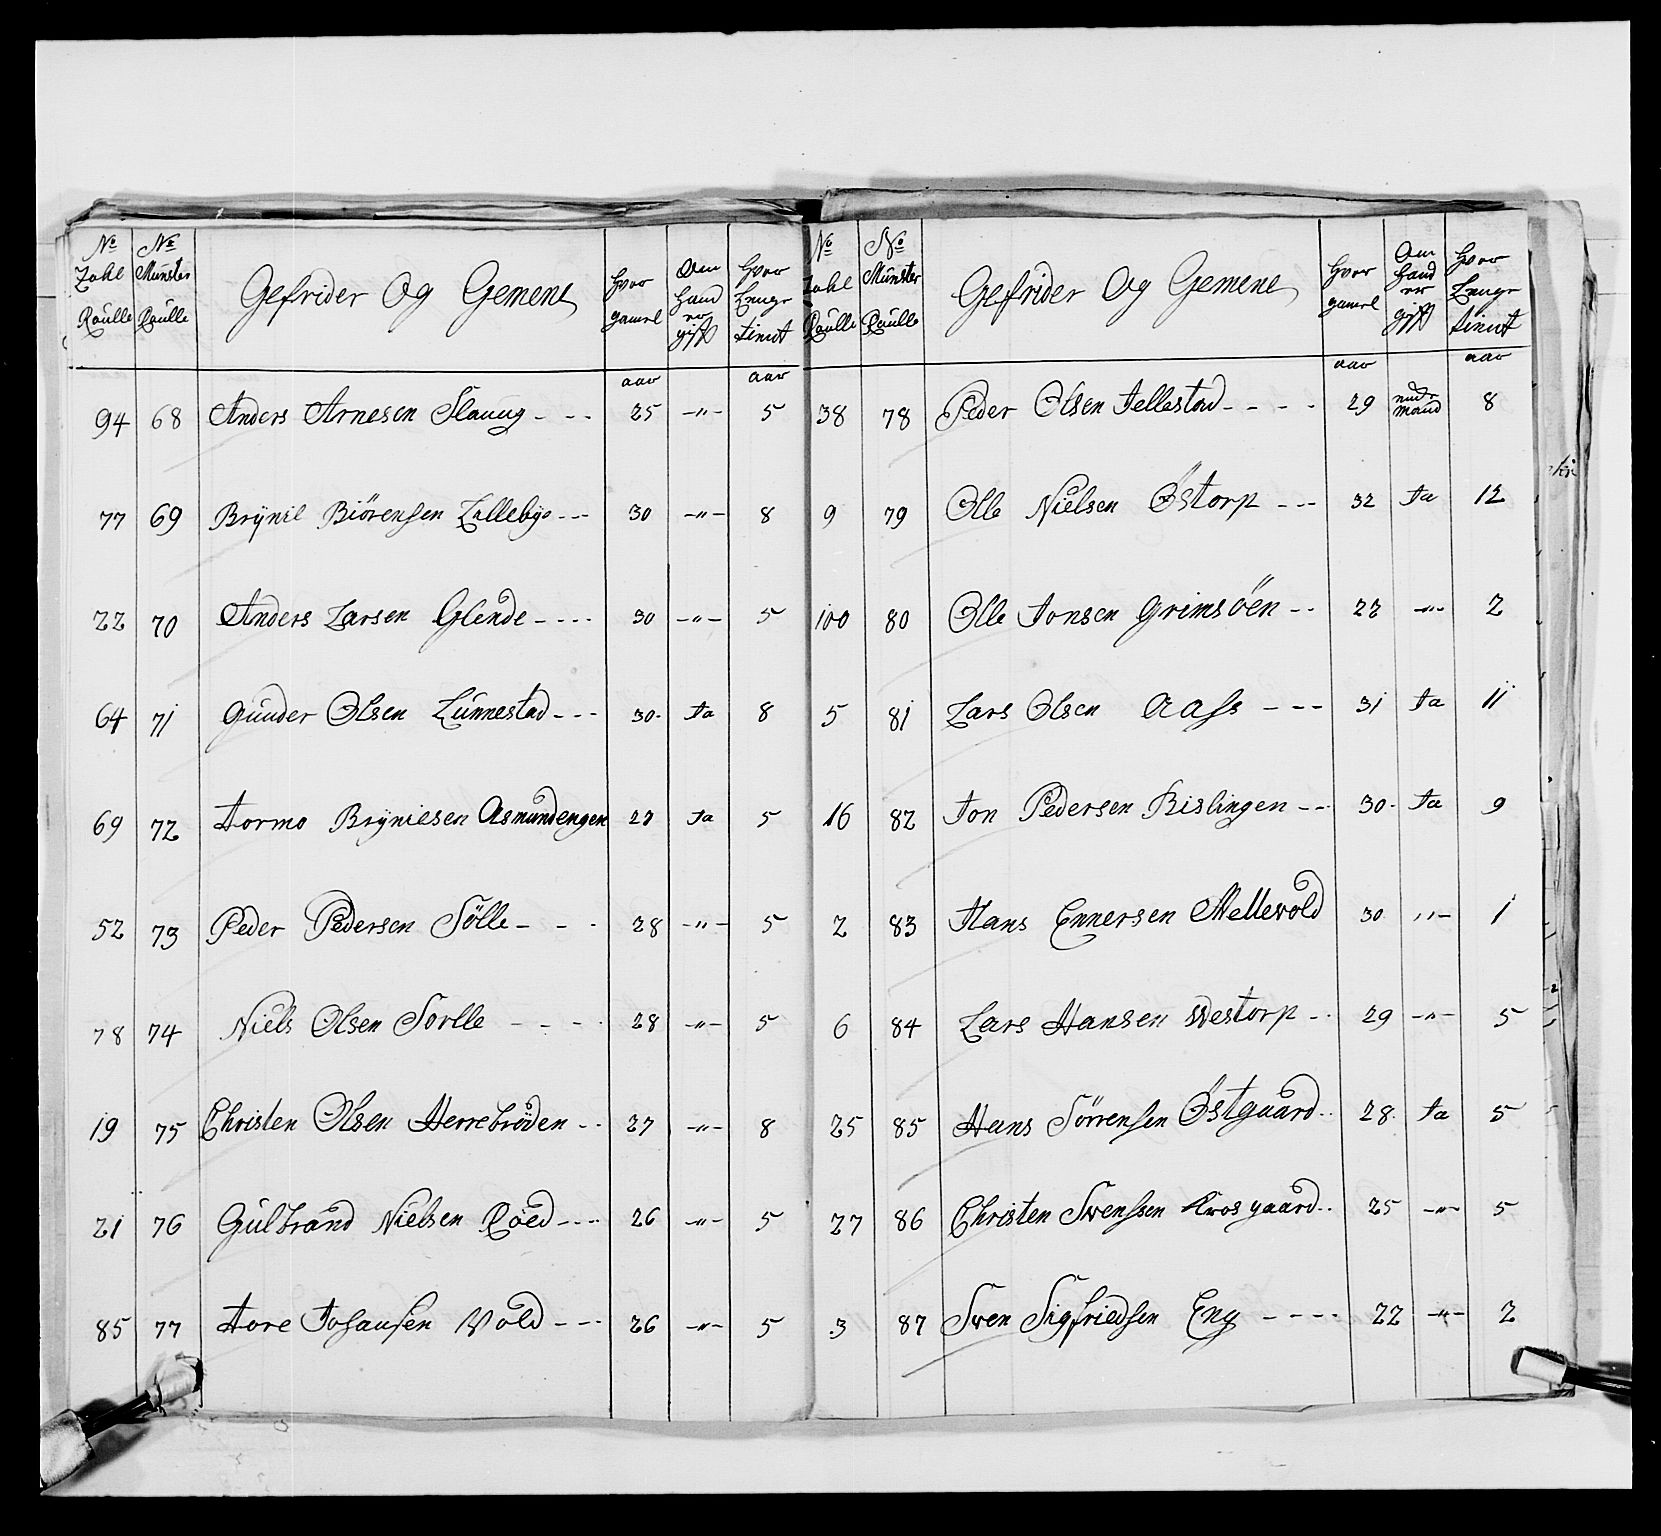 No Zahl Raulle | No Münster Raulle | Gefrider Og Gemene | hvor gamel | Om hand er gift | hvor Lenge tient
aar | aar
94 | 68 | Anders Arnesen Slaaug - - - | 25 | -"- | 5
77 | 69 | Brÿnil Biörensen Lallebye - - - | 30 | -"- | 8
22 | 70 | Anders Larsen Glende - - - - | 30 | -"- | 5
64 | 71 | Gunder Olsen Lunnestad - - - | 30 | Ja | 8
69 | 72 | Tormo Brÿnilsen Asmundengen | 27 | Ja | 5
52 | 73 | Peder Pedersen Sölle - - - | 28 | -"- | 5
78 | 74 | Niels Olsen Sorlle - - - - | 28 | -"- | 5
19 | 75 | Christen Olsen Herrebröden - - | 27 | -"- | 8
21 | 76 | Gulbrand Nielsen Röed - - - | 26 | -"- | 5
85 | 77 | Tore Johansen Wold - - - | 26 | -"- | 5
No Zahl Raulle | No Münster Raulle | Gefrider Og Gemene | hvor gamel | Om hand er gift | hvor Lenge tient
aar | aar
38 | 78 | Peder Olsen Tellestad - - - - | 29 | mand | 8
9 | 79 | Olle Nielsen Östorp - - - | 32 | Ja | 12
100 | 80 | Olle Jonsen Grimsöen - - | 22 | -"- | 2
5 | 81 | Lars Olsen Aass - - - | 31 | Ja | 11
16 | 82 | Jon Pedersen Kislingen - - | 30 | Ja | 9
2 | 83 | Hans Ennersen Mellevold | 30 | "- | 1
6 | 84 | Lars Hansen Westorp - - | 29 | -"- | 5
25 | 85 | Hans Sörrensen Östgaard - - | 28 | Ja | 5
27 | 86 | Christen Swenssen Krosgaard - - | 25 | -"- | 5
3 | 87 | Swen Sigfriedsen Eng - - - - | 22 | -"- | 2